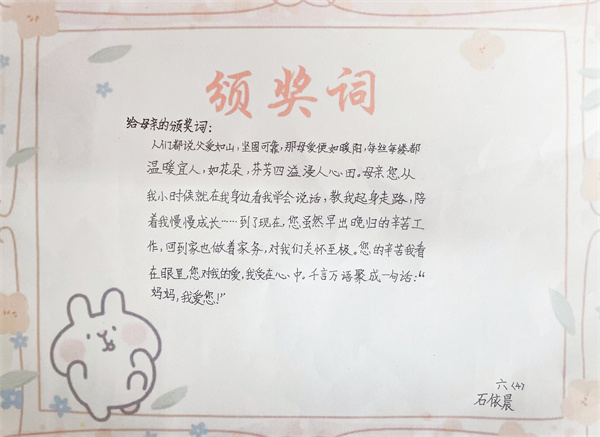 颁奖词
给母亲的颁奖词：
人们都说父爱如山，坚固可靠，那母爱便如暖阳，每丝每缕都
温暖宜人，如花朵，芬芳四溢浸人心田。母亲您从
我小时候就在我身边看我学会说话，教我起身走路，陪
着我慢慢成长……到了现在，您虽然早出晚归的辛苦工
作，回到家也做着家务，对我们关怀至极。您的辛苦我看
在眼里，您对我的爱，我爱在心中。千言万语聚成一句话：“
妈妈，我爱您！”
六（4）
石依晨